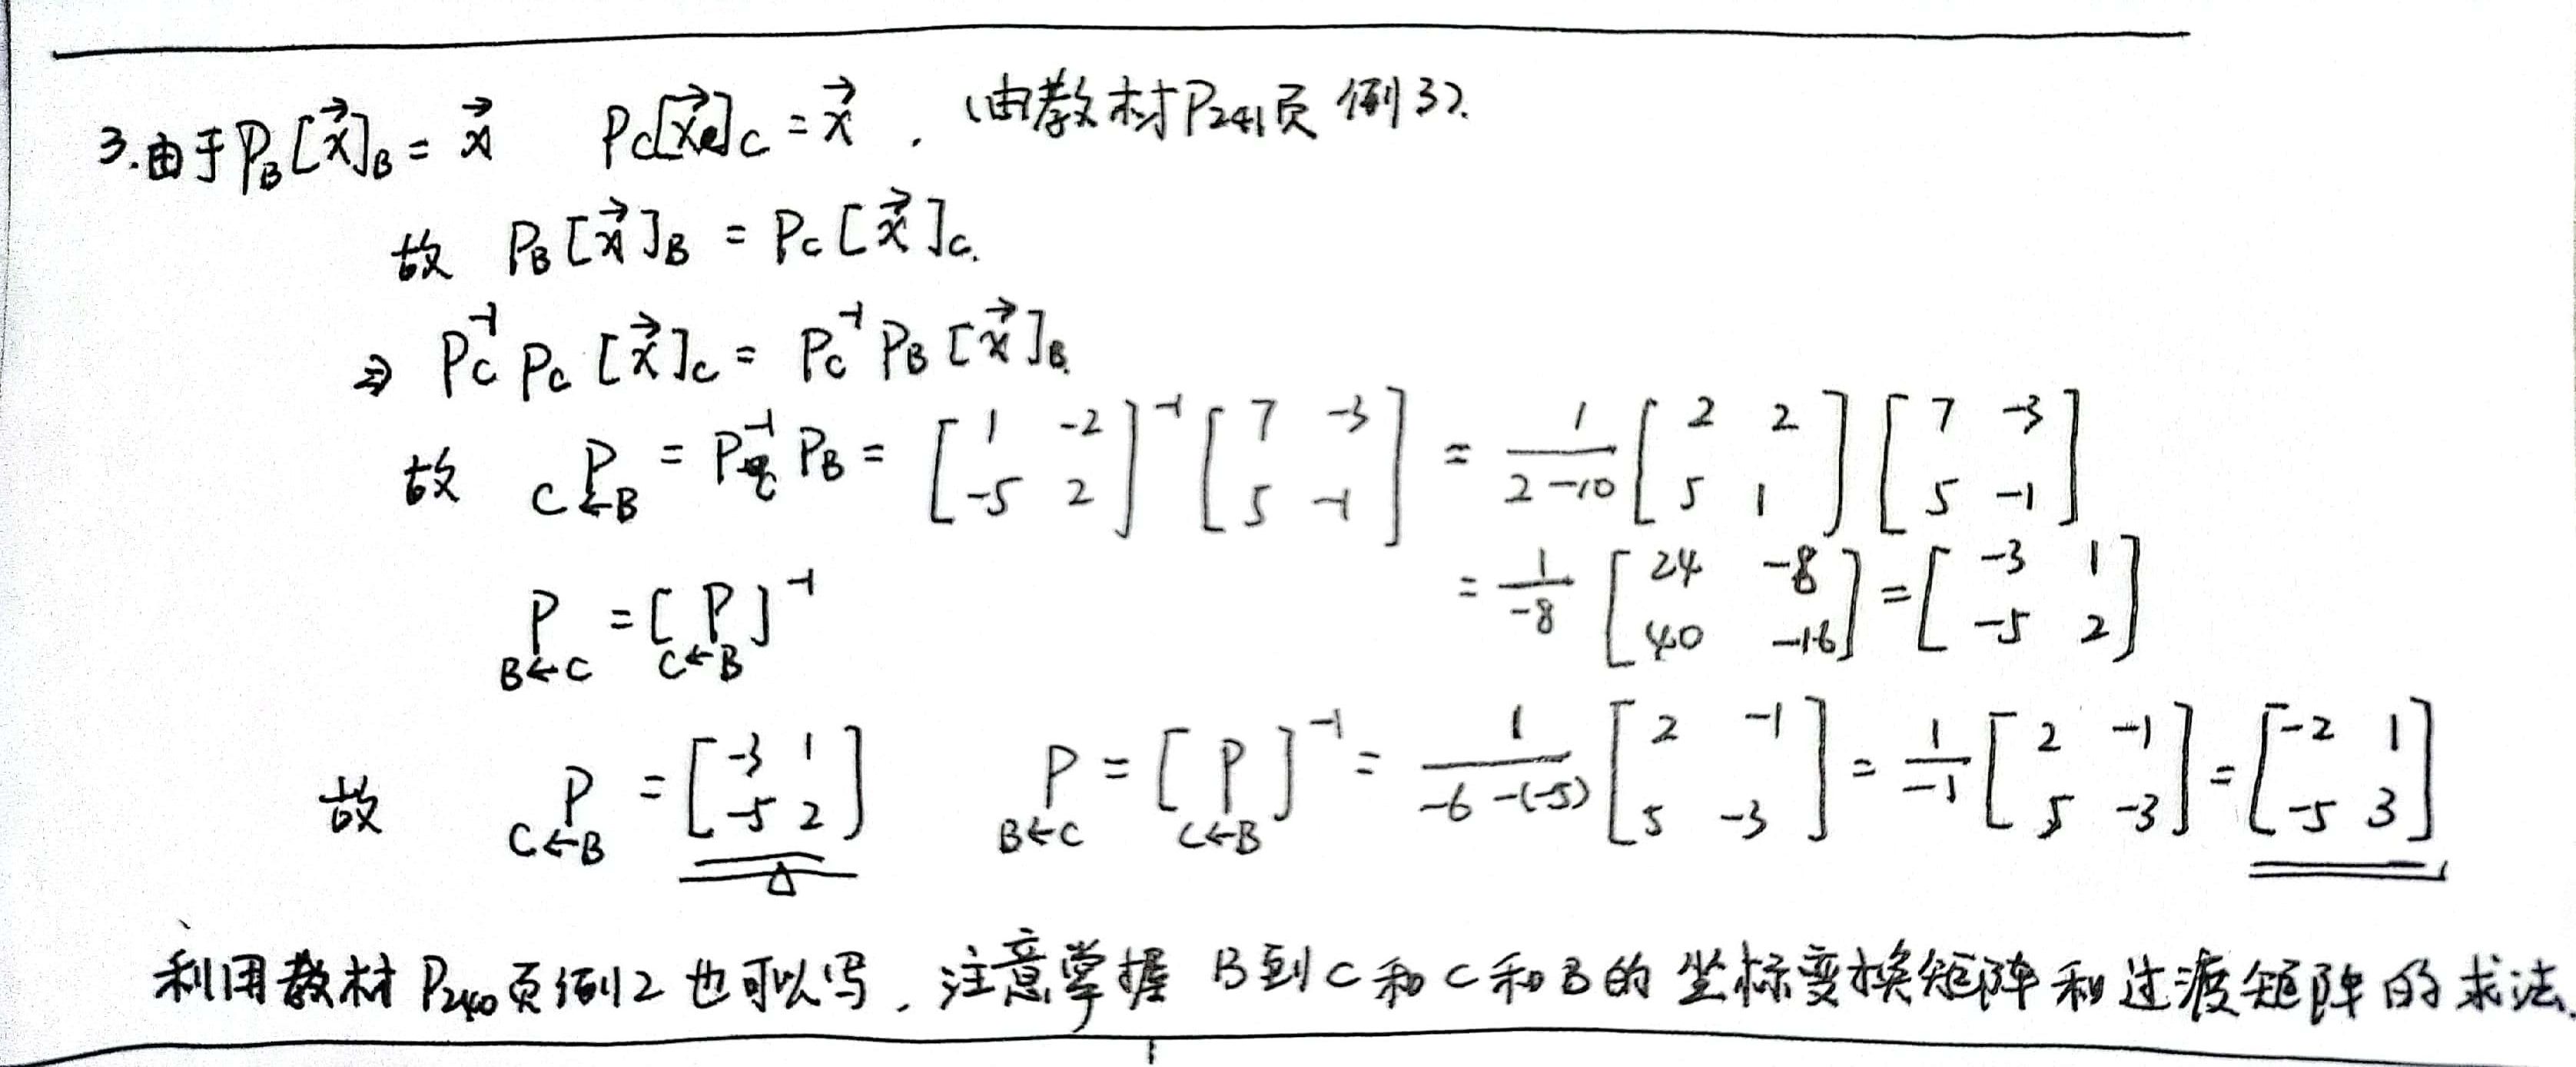 3.由于 P_B[x⃗]_B = x⃗  P_C[x⃗]_C = x⃗ . (由教材P241页 例3).
故 P_B[x⃗]_B = P_C[x⃗]_C.
⇒ P_C^{-1} P_C [x⃗]_C = P_C^{-1} P_B [x⃗]_B.
故 P_{C←B} = P_C^{-1} P_B = [1 -2; -5 2]^{-1} [7 -3; 5 -1] = 1/(2-10) [2 2; 5 1] [7 -3; 5 -1]
= 1/-8 [24 -8; 40 -16] = [-3 1; -5 2]
P_{B←C} = [P_{C←B}]^{-1}
故 P_{C←B} = [-3 1; -5 2]  P_{B←C} = [P_{C←B}]^{-1} = 1/(-6-(-5)) [2 -1; 5 -3] = 1/-1 [2 -1; 5 -3] = [-2 1; -5 3]
利用教材 P240页例2 也可以写 . 注意掌握 B到C和C和B的 坐标变换矩阵和过渡矩阵的求法.